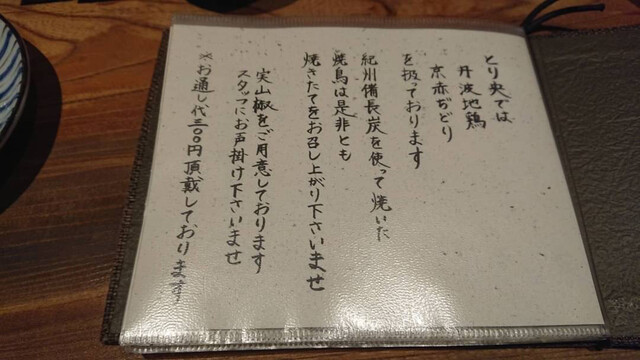 とり央では
丹波地鶏
京赤ぢどり
を扱っております
紀州備長炭を使って焼いた
焼鳥は是非とも
焼きたてをお召し上がり下さいませ
実山椒をご用意しております
スタッフにお声掛け下さいませ
※お通し代三〇〇円頂戴しております